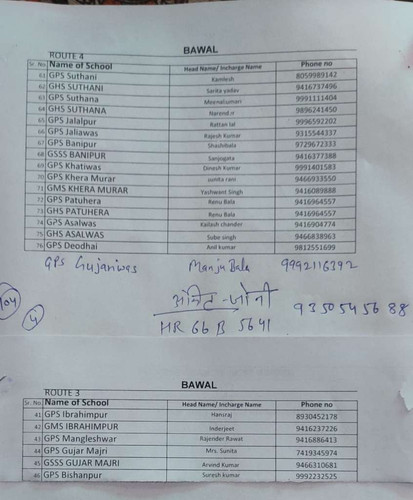 BAWAL
ROUTE 4
Sr. No Name of School Head Name/ Incharge Name Phone no
61 GPS Suthani Kamlesh 8059989142
62 GHS SUTHANI Sarita yadav 9416737496
63 GPS Suthana Meenakumari 9991111404
64 GHS SUTHANA Narend.n 9896241450
65 GPS Jalalpur Rattan lal 9996592202
66 GPS Jaliawas Rajesh Kumar 9315544337
67 GPS Banipur Shashibala 9729672333
68 GSSS BANIPUR Sanjogata 9416377388
69 GPS Khatiwas Dinesh Kumar 9991401583
70 GPS Khera Murar sunita rani 9466933550
71 GMS KHERA MURAR Yashwant Singh 9416089888
72 GPS Patuhera Renu Bala 9416964557
73 GHS PATUHERA Renu Bala 9416964557
74 GPS Asalwas Kailash chander 9416904774
75 GHS ASALWAS Sube singh 9466838963
76 GPS Deodhai Anil kumar 9812551699
GPS Gujariwas Manju Bala 9992116392
104
4
9350545688
HR 66 B 5641
BAWAL
ROUTE 3
Sr. No. Name of School Head Name/ Incharge Name Phone no
41 GPS Ibrahimpur Hansraj 8930452178
42 GMS IBRAHIMPUR Inderjeet 9416237226
43 GPS Mangleshwar Rajender Rawat 9416886413
44 GPS Gujar Majri Mrs. Sunita 7419345974
45 GSSS GUJAR MAJRI Arvind Kumar 9466310681
46 GPS Bishanpur Suresh kumar 9992232525